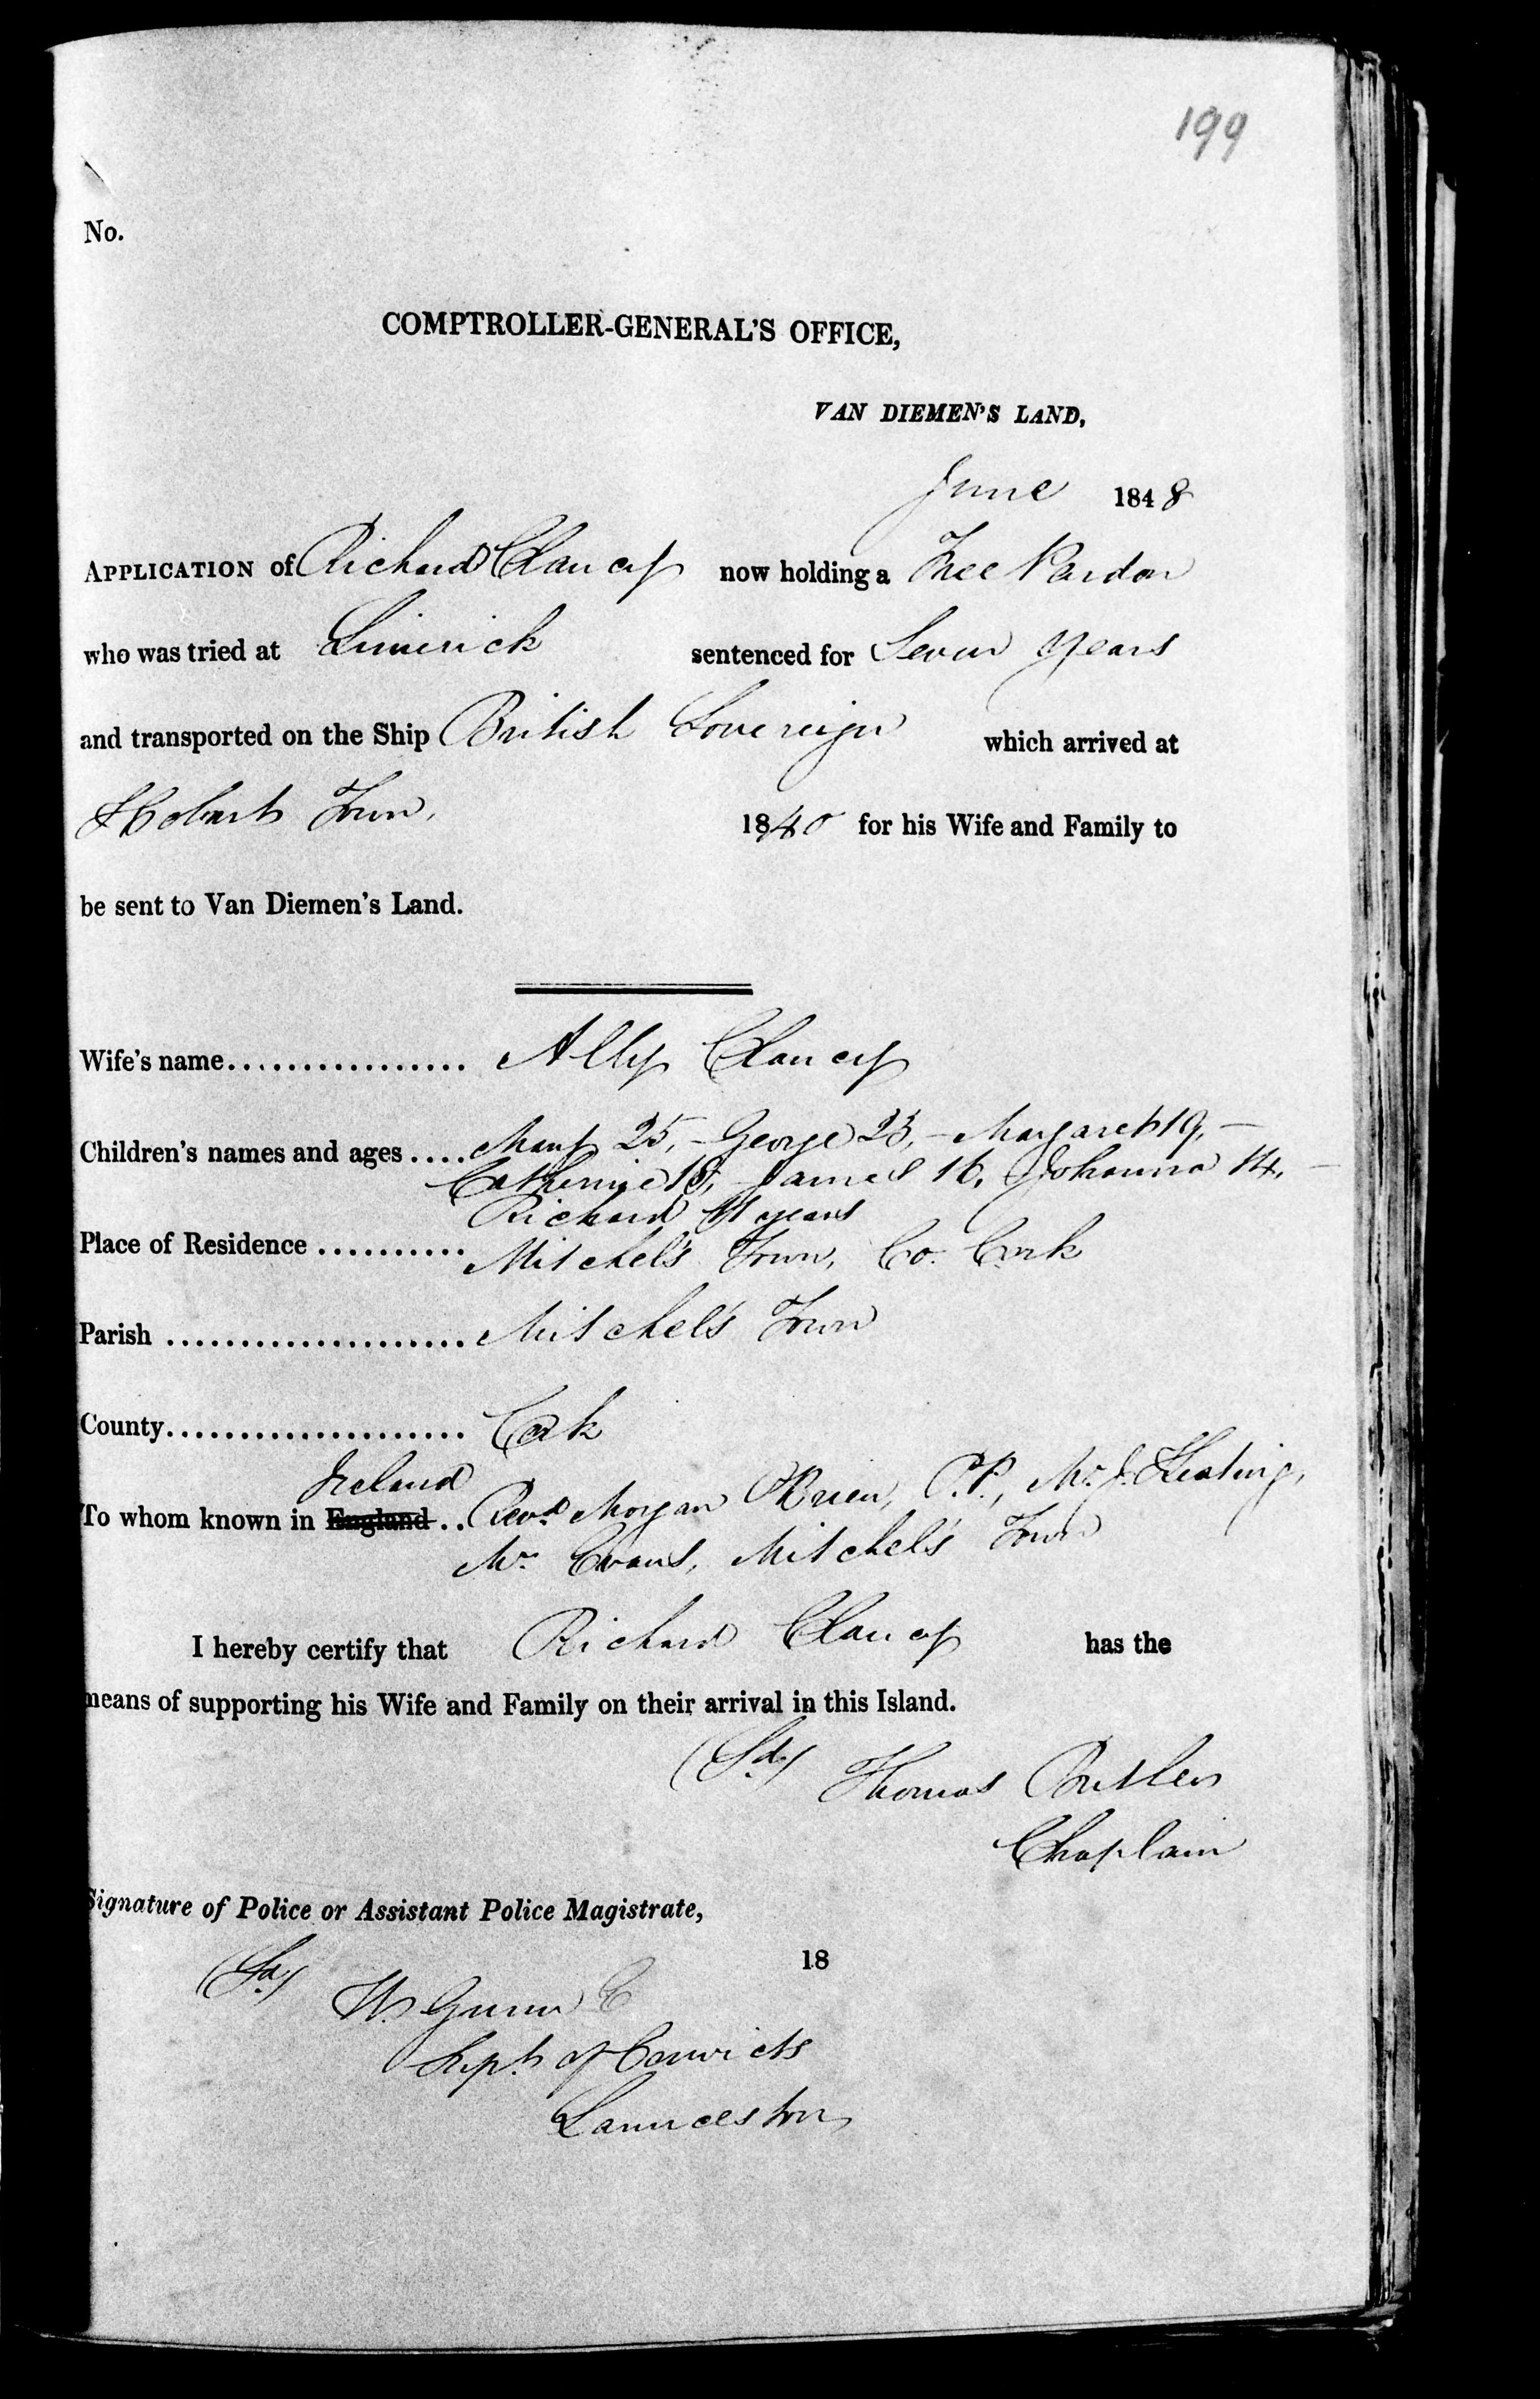 199
No.
COMPTROLLER-GENERAL'S OFFICE,
VAN DIEMEN'S LAND,
June 1848
APPLICATION of Richard Clancy now holding a Free Pardon
who was tried at Limerick sentenced for Seven years
and transported on the Ship British Sovereign which arrived at
Hobart Town, 1840 for his Wife and Family to
be sent to Van Diemen's Land.
Wife's name................ Ally Clancy
Children's names and ages .... Mary 25, - George 23, - Margaret 19, -
Catherine 18, - James 16, Johanna 14, -
Richard 11 years
Place of Residence .......... Mitchel's Town, Co. Cork
Parish .................... Mitchel's Town
County.................... Cork
Ireland
To whom known in England .. Revd. Morgan O'Brien, P.P., Mr. J. Keating,
Mr. Evans, Mitchel's Town
I hereby certify that Richard Clancy has the
means of supporting his Wife and Family on their arrival in this Island.
(Sd.) Thomas Butler
Chaplain
Signature of Police or Assistant Police Magistrate,
18
(Sd.) W. Gunn
Supt. of Convicts
Launceston